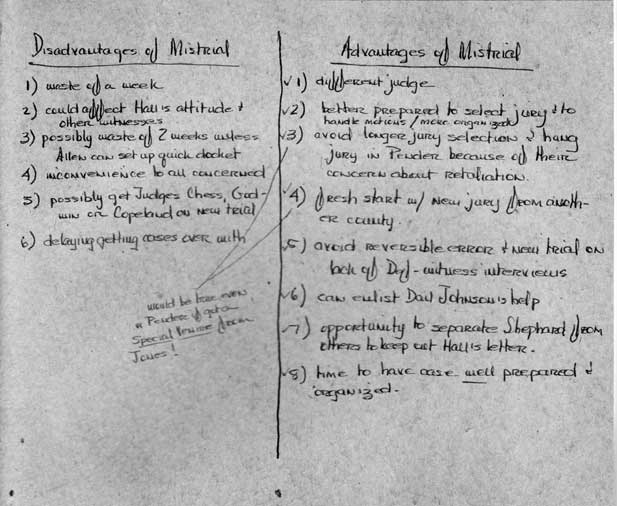 Disadvantages of Mistrial
1) waste of a week
2) could affect Hall's attitude &
other witnesses
3) possibly waste of 2 weeks unless
Allen can set up quick docket
4) inconvenience to all concerned
5) possibly get Judges Chess, God-
win or Copeland on new trial
6) delaying getting cases over with
would be true even
in Pender if got a
Special Venire from
Jones!
Advantages of Mistrial
✓1) different judge
✓2) better prepared to select jury & to
handle motions / more organized
✓3) avoid longer jury selection & hung
jury in Pender because of their
concern about retaliation.
✓4) fresh start w/ new jury from anoth-
er county.
✓5) avoid reversible error & new trial on
lack of Def-witness interviews
✓6) can enlist Dail Johnson's help
✓7) opportunity to separate Shephard from
others to keep out Hall's letter.
✓8) time to have case well prepared &
organized.